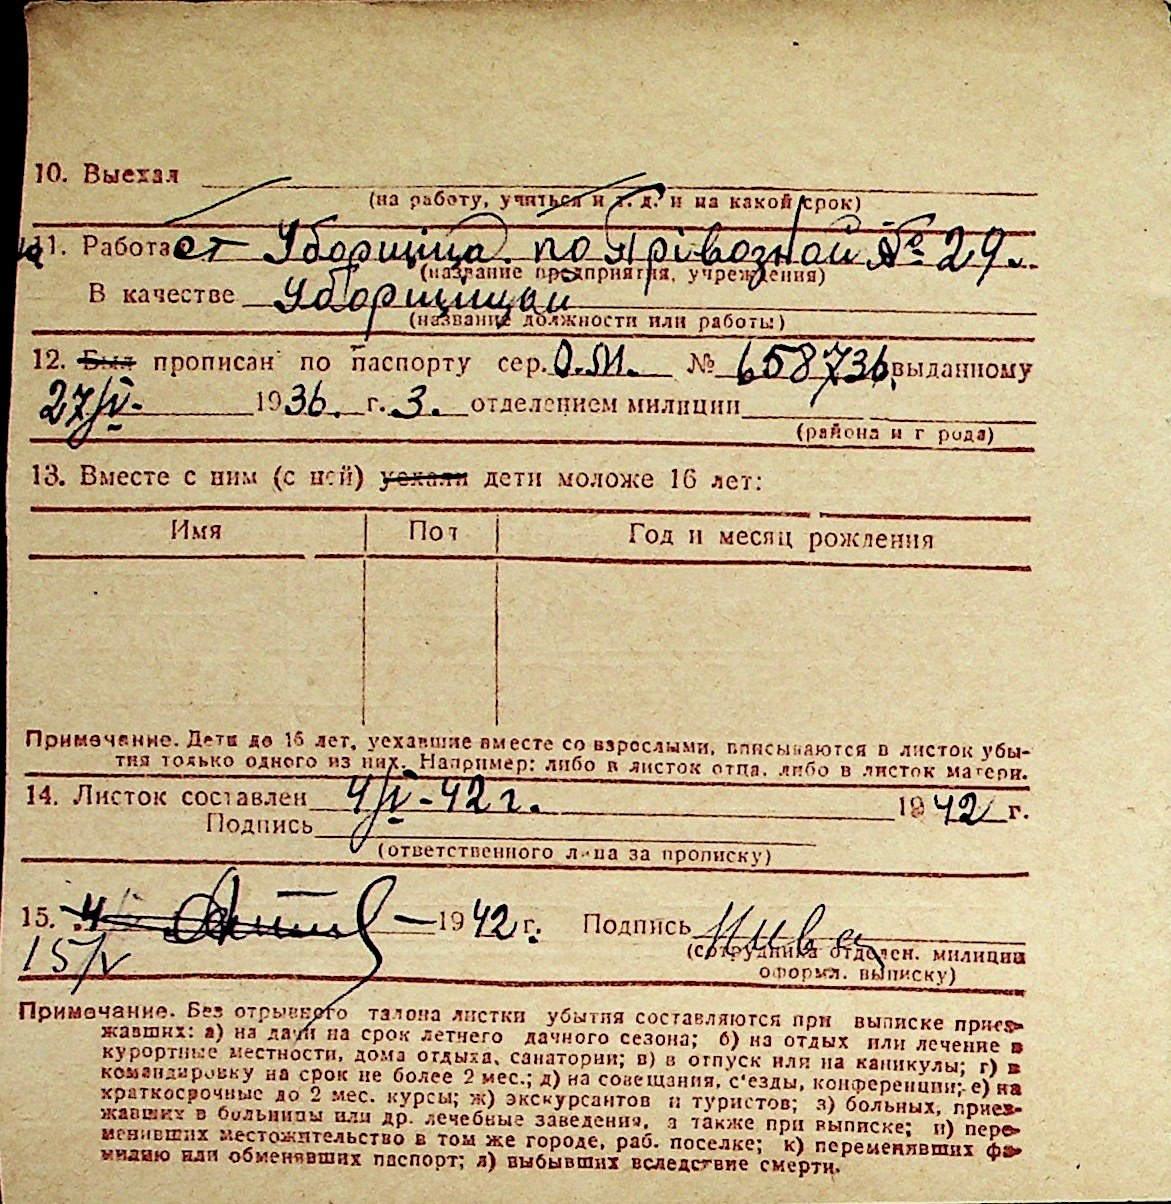 10. Выехал
(на работу, учиться и т. д. и на какой срок)
11. Работает Уборщіца. по Прівозной № 29.
(название предприятия, учреждения)
В качестве Уборщицы
(название должности или работы)
12. Был прописан по паспорту сер. О.М. № 658736, выданному
27/IV. 1936. г. 3. отделением милиции
(района и г рода)
13. Вместе с ним (с ней) уехали дети моложе 16 лет:
Имя Пол Год и месяц рождения
Примечание. Дети до 16 лет, уехавшие вместе со взрослыми, вписываются в листок убы-
тия только одного из них. Например: либо в листок отца, либо в листок матери.
14. Листок составлен 4/IV-42 г. 1942 г.
Подпись
(ответственного лица за прописку)
15. 4 1942 г. Подпись
15/V
(сотрудника отделен. милиции
оформл. выписку)
Примечание. Без отрывного талона листки убытия составляются при выписке приез-
жавших: а) на дачи на срок летнего дачного сезона; б) на отдых или лечение в
курортные местности, дома отдыха, санатории; в) в отпуск или на каникулы; г) в
командировку на срок не более 2 мес.; д) на совещания, с'езды, конференции; е) на
краткосрочные до 2 мес. курсы; ж) экскурсантов и туристов; з) больных, приез-
жавших в больницы или др. лечебные заведения, а также при выписке; и) пере-
менивших местожительство в том же городе, раб. поселке; к) переменявших фа-
милию или обменявших паспорт; л) выбывших вследствие смерти.